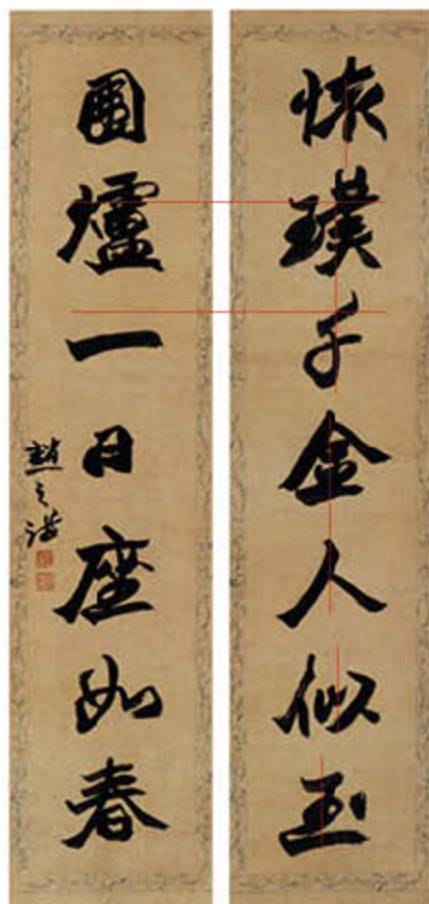 懷璞千金人似玉
圍爐一日座如春
趙之謙